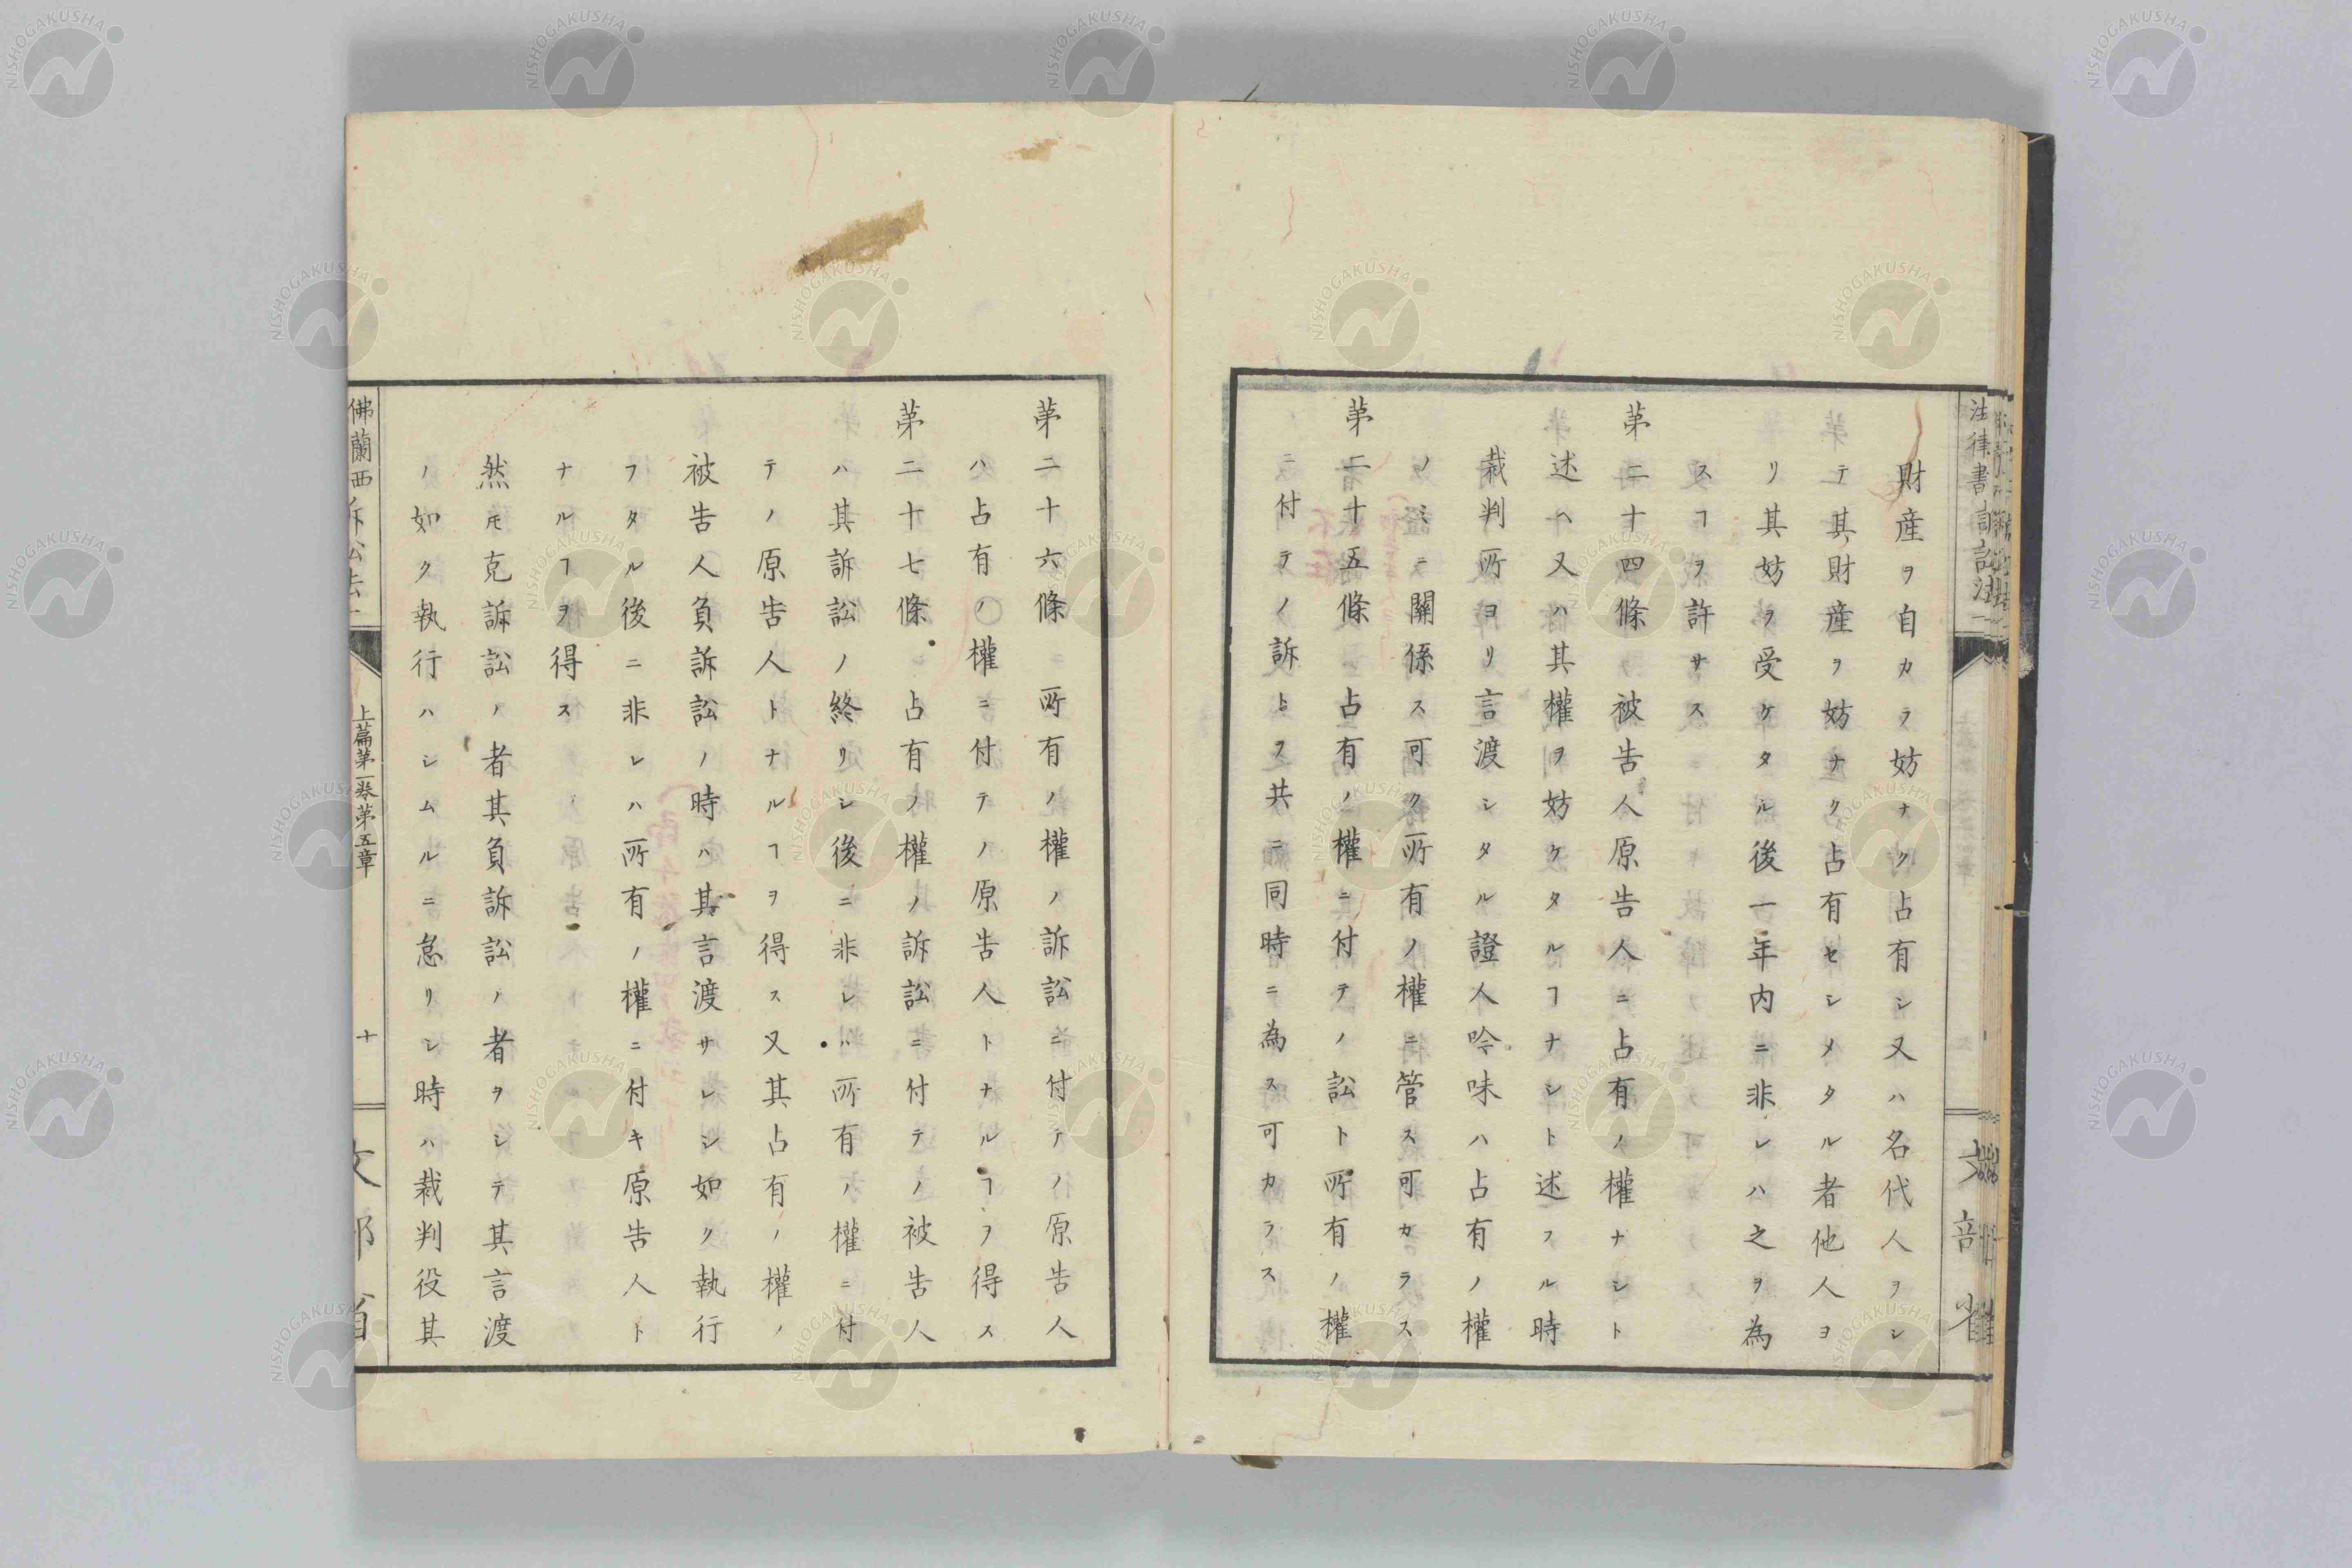 財産ヲ自カラ妨ナク占有シ又ハ名代人ヲシ
テ其財産ヲ妨ナク占有セシメタル者他人ヨ
リ其妨ヲ受ケタル後一年内ニ非レハ之ヲ為
スヿヲ許サス
第二十四條 被告人原告人ニ占有ノ權ナシト
述ヘ又ハ其權ヲ妨ケタルヿナシト述フル時
裁判所ヨリ言渡シタル證人吟味ハ占有ノ權
ノミニ關係ス可ク所有ノ權ニ管ス可カラス
第二十五條 占有ノ權ニ付テノ訟ト所有ノ權
ニ付テノ訴トヲ共ニ同時ニ為ス可カラス
第二十六條 所有ノ權ノ訴訟ニ付テノ原告人
ハ占有ノ〇權ニ付テノ原告人トナルヿヲ得ス
第二十七條 占有ノ權ノ訴訟ニ付テノ被告人
ハ其訴訟ノ終リシ後ニ非レハ所有ノ權ニ付
テノ原告人トナルヿヲ得ス又其占有ノ權ノ
被告人負訴訟ノ時ハ其言渡サレシ如ク執行
フタル後ニ非レハ所有ノ權ニ付キ原告人ト
ナルヿヲ得ス
然𪜈克訴訟ノ者其負訴訟ノ者ヲシテ其言渡
ノ如ク執行ハシムルニ怠リシ時ハ裁判役其
佛蘭西訴訟法一
上篇第一巻第五章
十
文部省
NISHOGAKUSHA